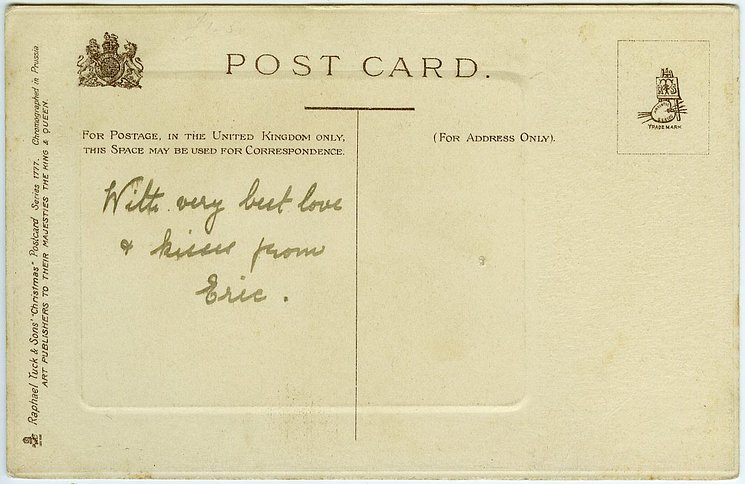 POST CARD.
FOR POSTAGE, IN THE UNITED KINGDOM ONLY,
THIS SPACE MAY BE USED FOR CORRESPONDENCE.
(FOR ADDRESS ONLY).
TRADE MARK
With very best love
& kisses from
Eric.
Raphael Tuck & Sons' "Christmas" Postcard Series 1777. Chromographed in Prussia.
ART PUBLISHERS TO THEIR MAJESTIES THE KING & QUEEN.